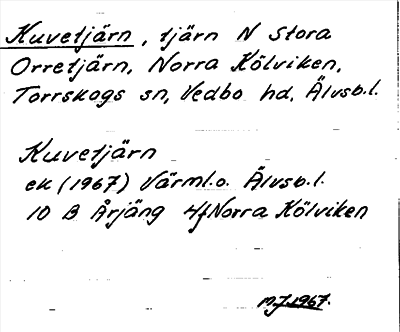 Kuvetjärn, tjärn N Stora
Orretjärn, Norra Kölviken,
Torrskogs sn, Vedbo hd, Älvsb.l.
Kuvetjärn
ek (1967) Värml.o. Älvsb.l.
10 B Årjäng 4f Norra Kölviken
M.J. 1967.